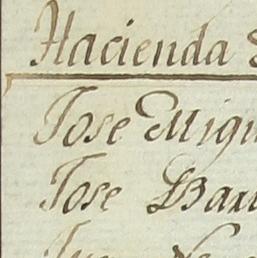 Hacienda
Jose Migu
Jose Bar